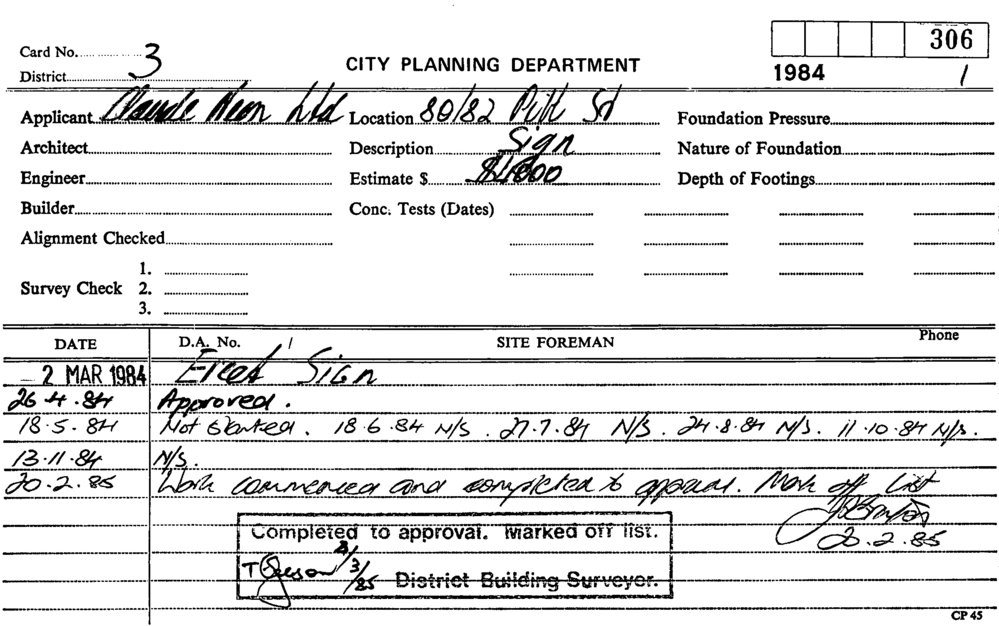 Card No. 3
306
District
CITY PLANNING DEPARTMENT
1984 /
Applicant Claude Neon Ltd Location 80/82 Pitt St Foundation Pressure
Architect Description Sign Nature of Foundation
Engineer Estimate $ Depth of Footings
Builder Conc. Tests (Dates)
Alignment Checked
1.
Survey Check 2.
3.
DATE D.A. No. / SITE FOREMAN Phone
2 MAR 1984 Erect Sign
26.4.84 Approved.
18.5.84 Not Started. 18.6.84 N/S. 27.7.84 N/S. 24.8.84 N/S. 11.10.84 N/S.
13.11.84 N/S.
20.2.85 Work commenced and completed to approval. Mark off List
20.2.85
Completed to approval. Marked off list.
T 3/85 District Building Surveyor.
CP 45